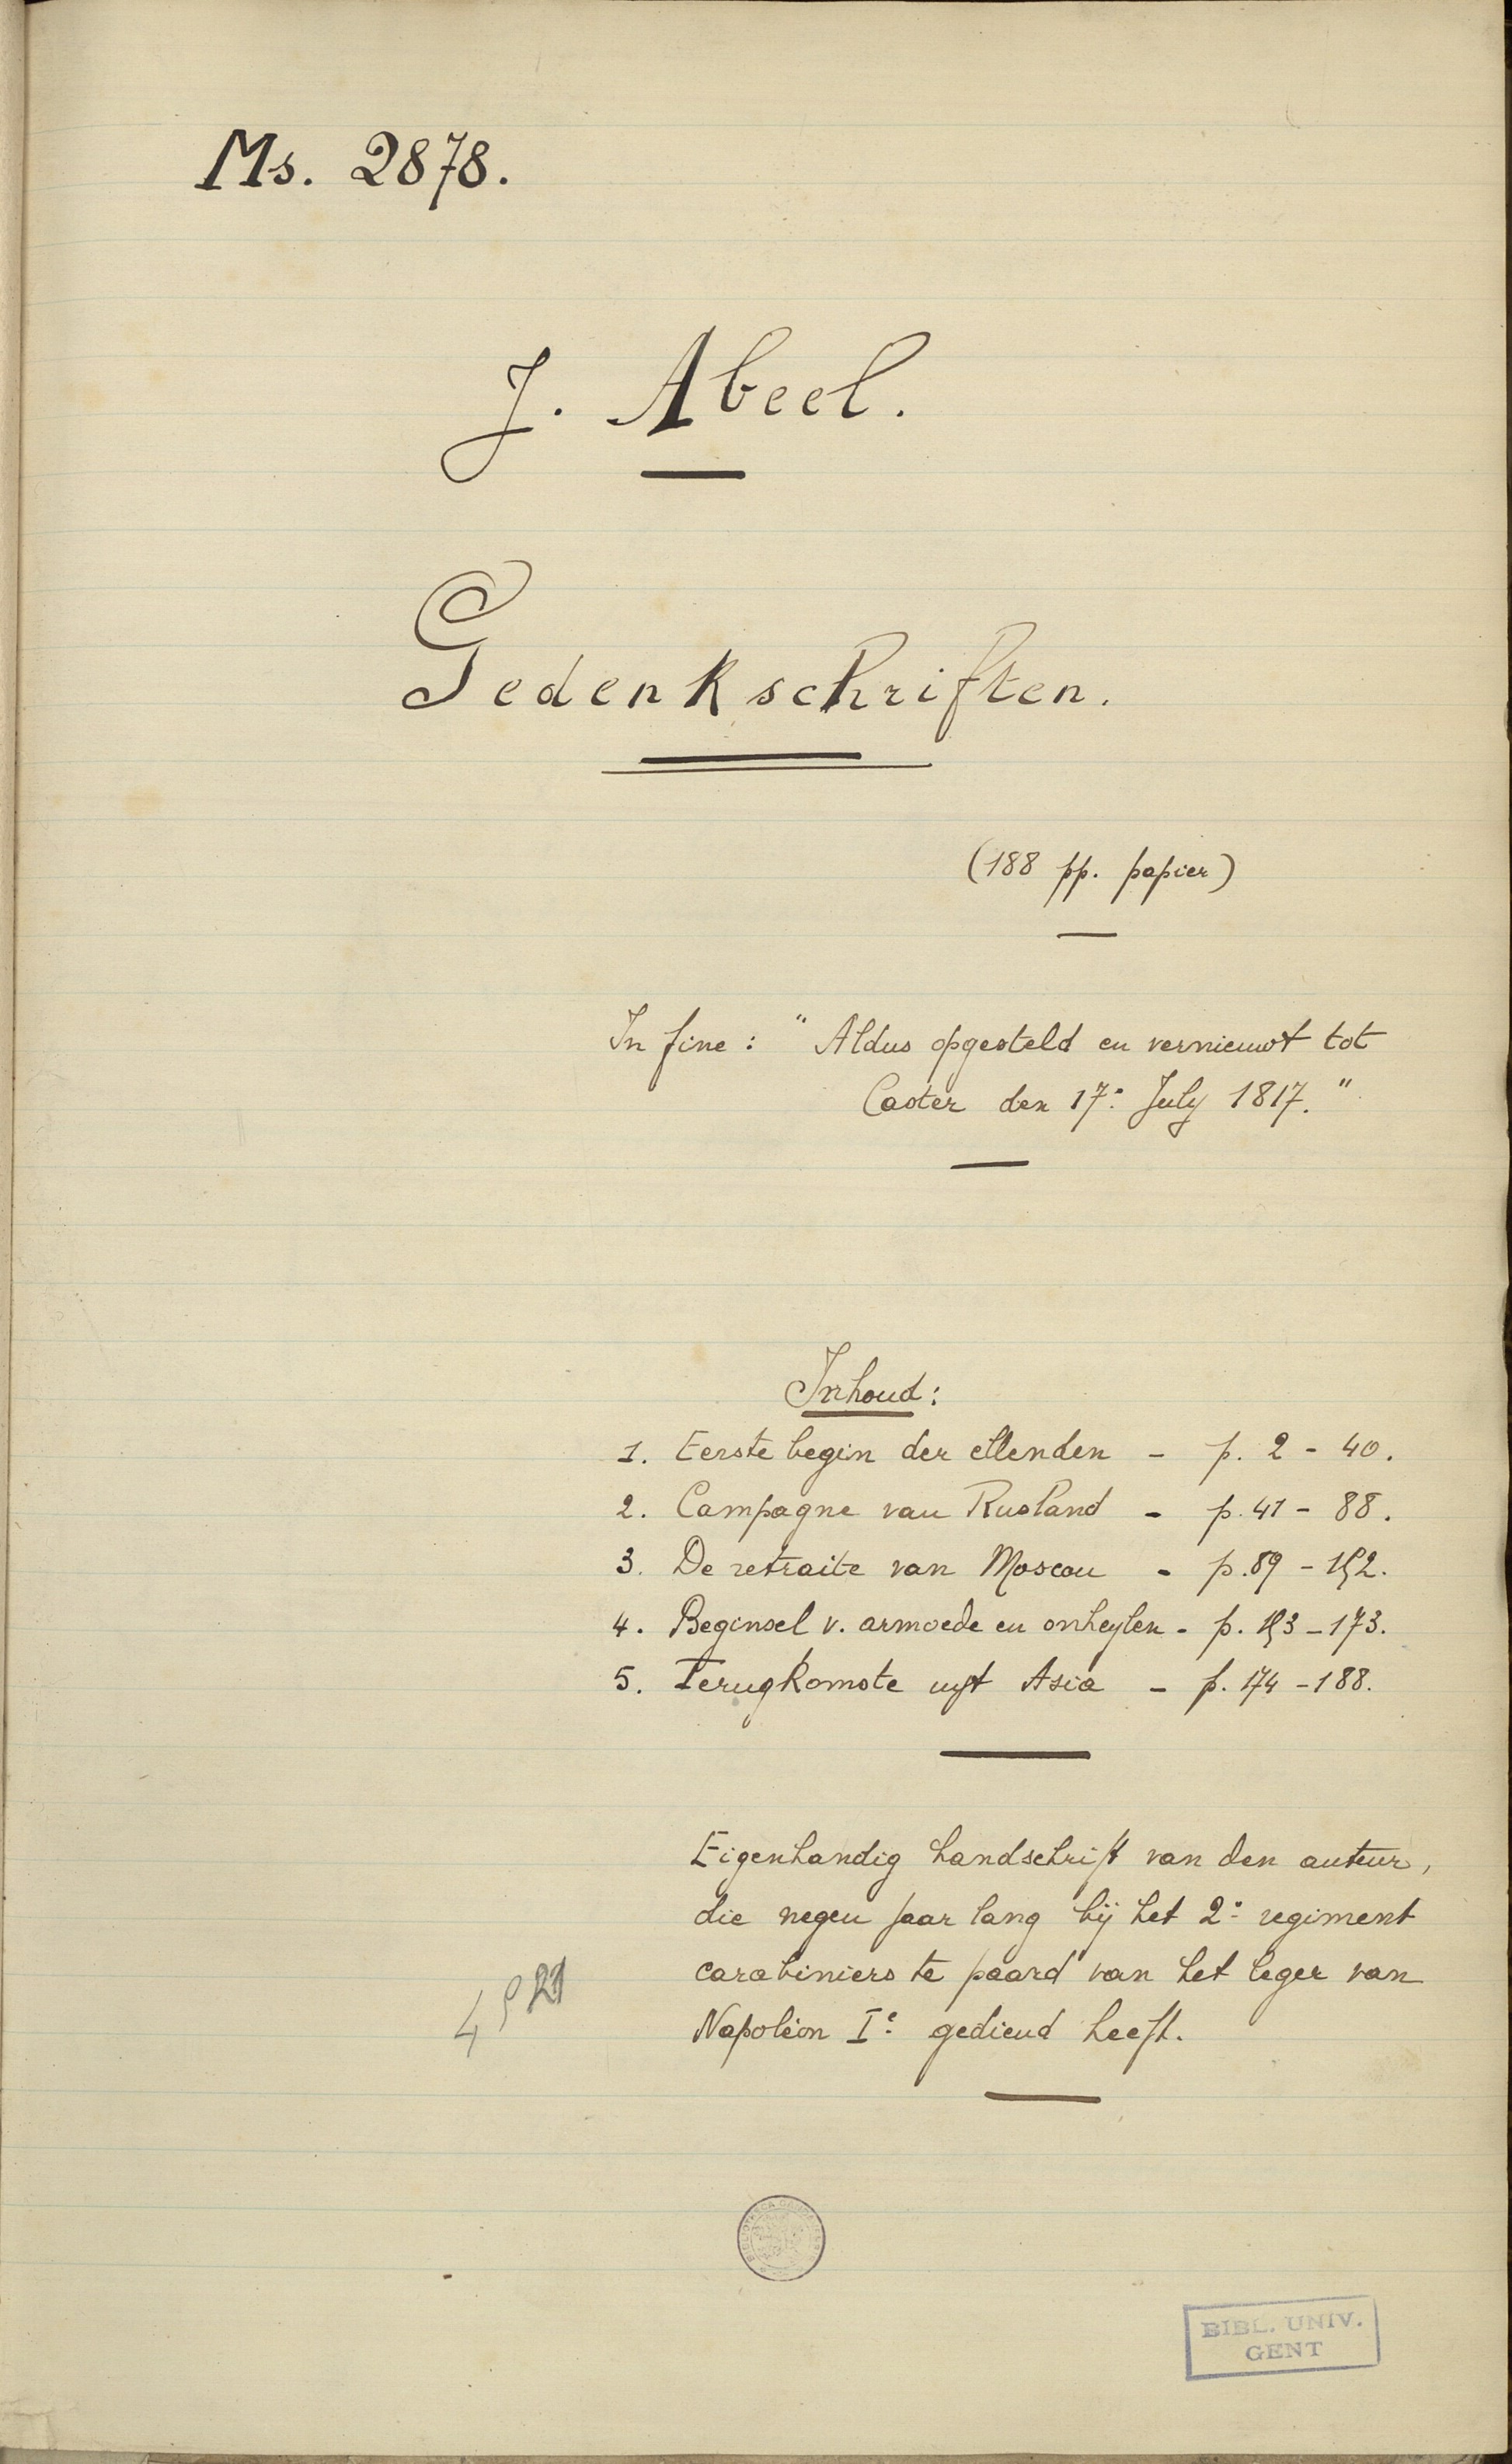 Ms. 2878.
J. Abeel.
Gedenkschriften.
(188 pp. papier)
In fine : "Aldus opgesteld en vernieuwt tot
Caster den 17e July 1817."
Inhoud :
1. Eerste begin der ellenden - p. 2 - 40.
2. Campagne van Rusland - p. 41 - 88.
3. De retraite van Moscou - p. 89 - 152.
4. Beginsel v. armoede en onheylen - p. 153 - 173.
5. Terugkomste uyt Asia - p. 174 - 188.
Eigenhandig handschrift van den auteur,
die negen jaar lang bij het 2e regiment
carabiniers te paard van het leger van
Napoléon Ie gediend heeft.
BIBL. UNIV.
GENT